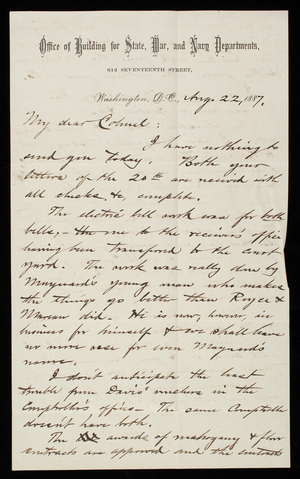 Office of Building for State, War, and Navy Departments,
613 SEVENTEENTH STREET,
Washington, D.C., Aug. 22, 1887.
My dear Colonel:
I have nothing to
send you today. Both your
letters of the 20th are received with
all checks &c, complete.
The electric bell work was for both
bells, - the one to the receiver's office
having been transferred to the court
yard. The work was really done by
Maynard's young man who makes
the things go better than Royce &
Marean did. He is now, however, in
business for himself & we shall have
no more use for even Maynard's
name.
I don't anticipate the least
trouble from Davis' vouchers in the
Comptroller's office - The same Comptroller
doesn't have both.
The awards of mahogany & floor
contracts are approved and the contracts